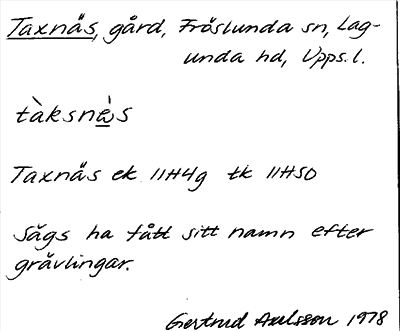 Taxnäs, gård, Fröslunda sn, Lag-
unda hd, Upps. l.
tàksnὲ̱s
Taxnäs ek 11H4g tk 11H50
Sägs ha fått sitt namn efter
grävlingar.
Gertrud Axelsson 1978